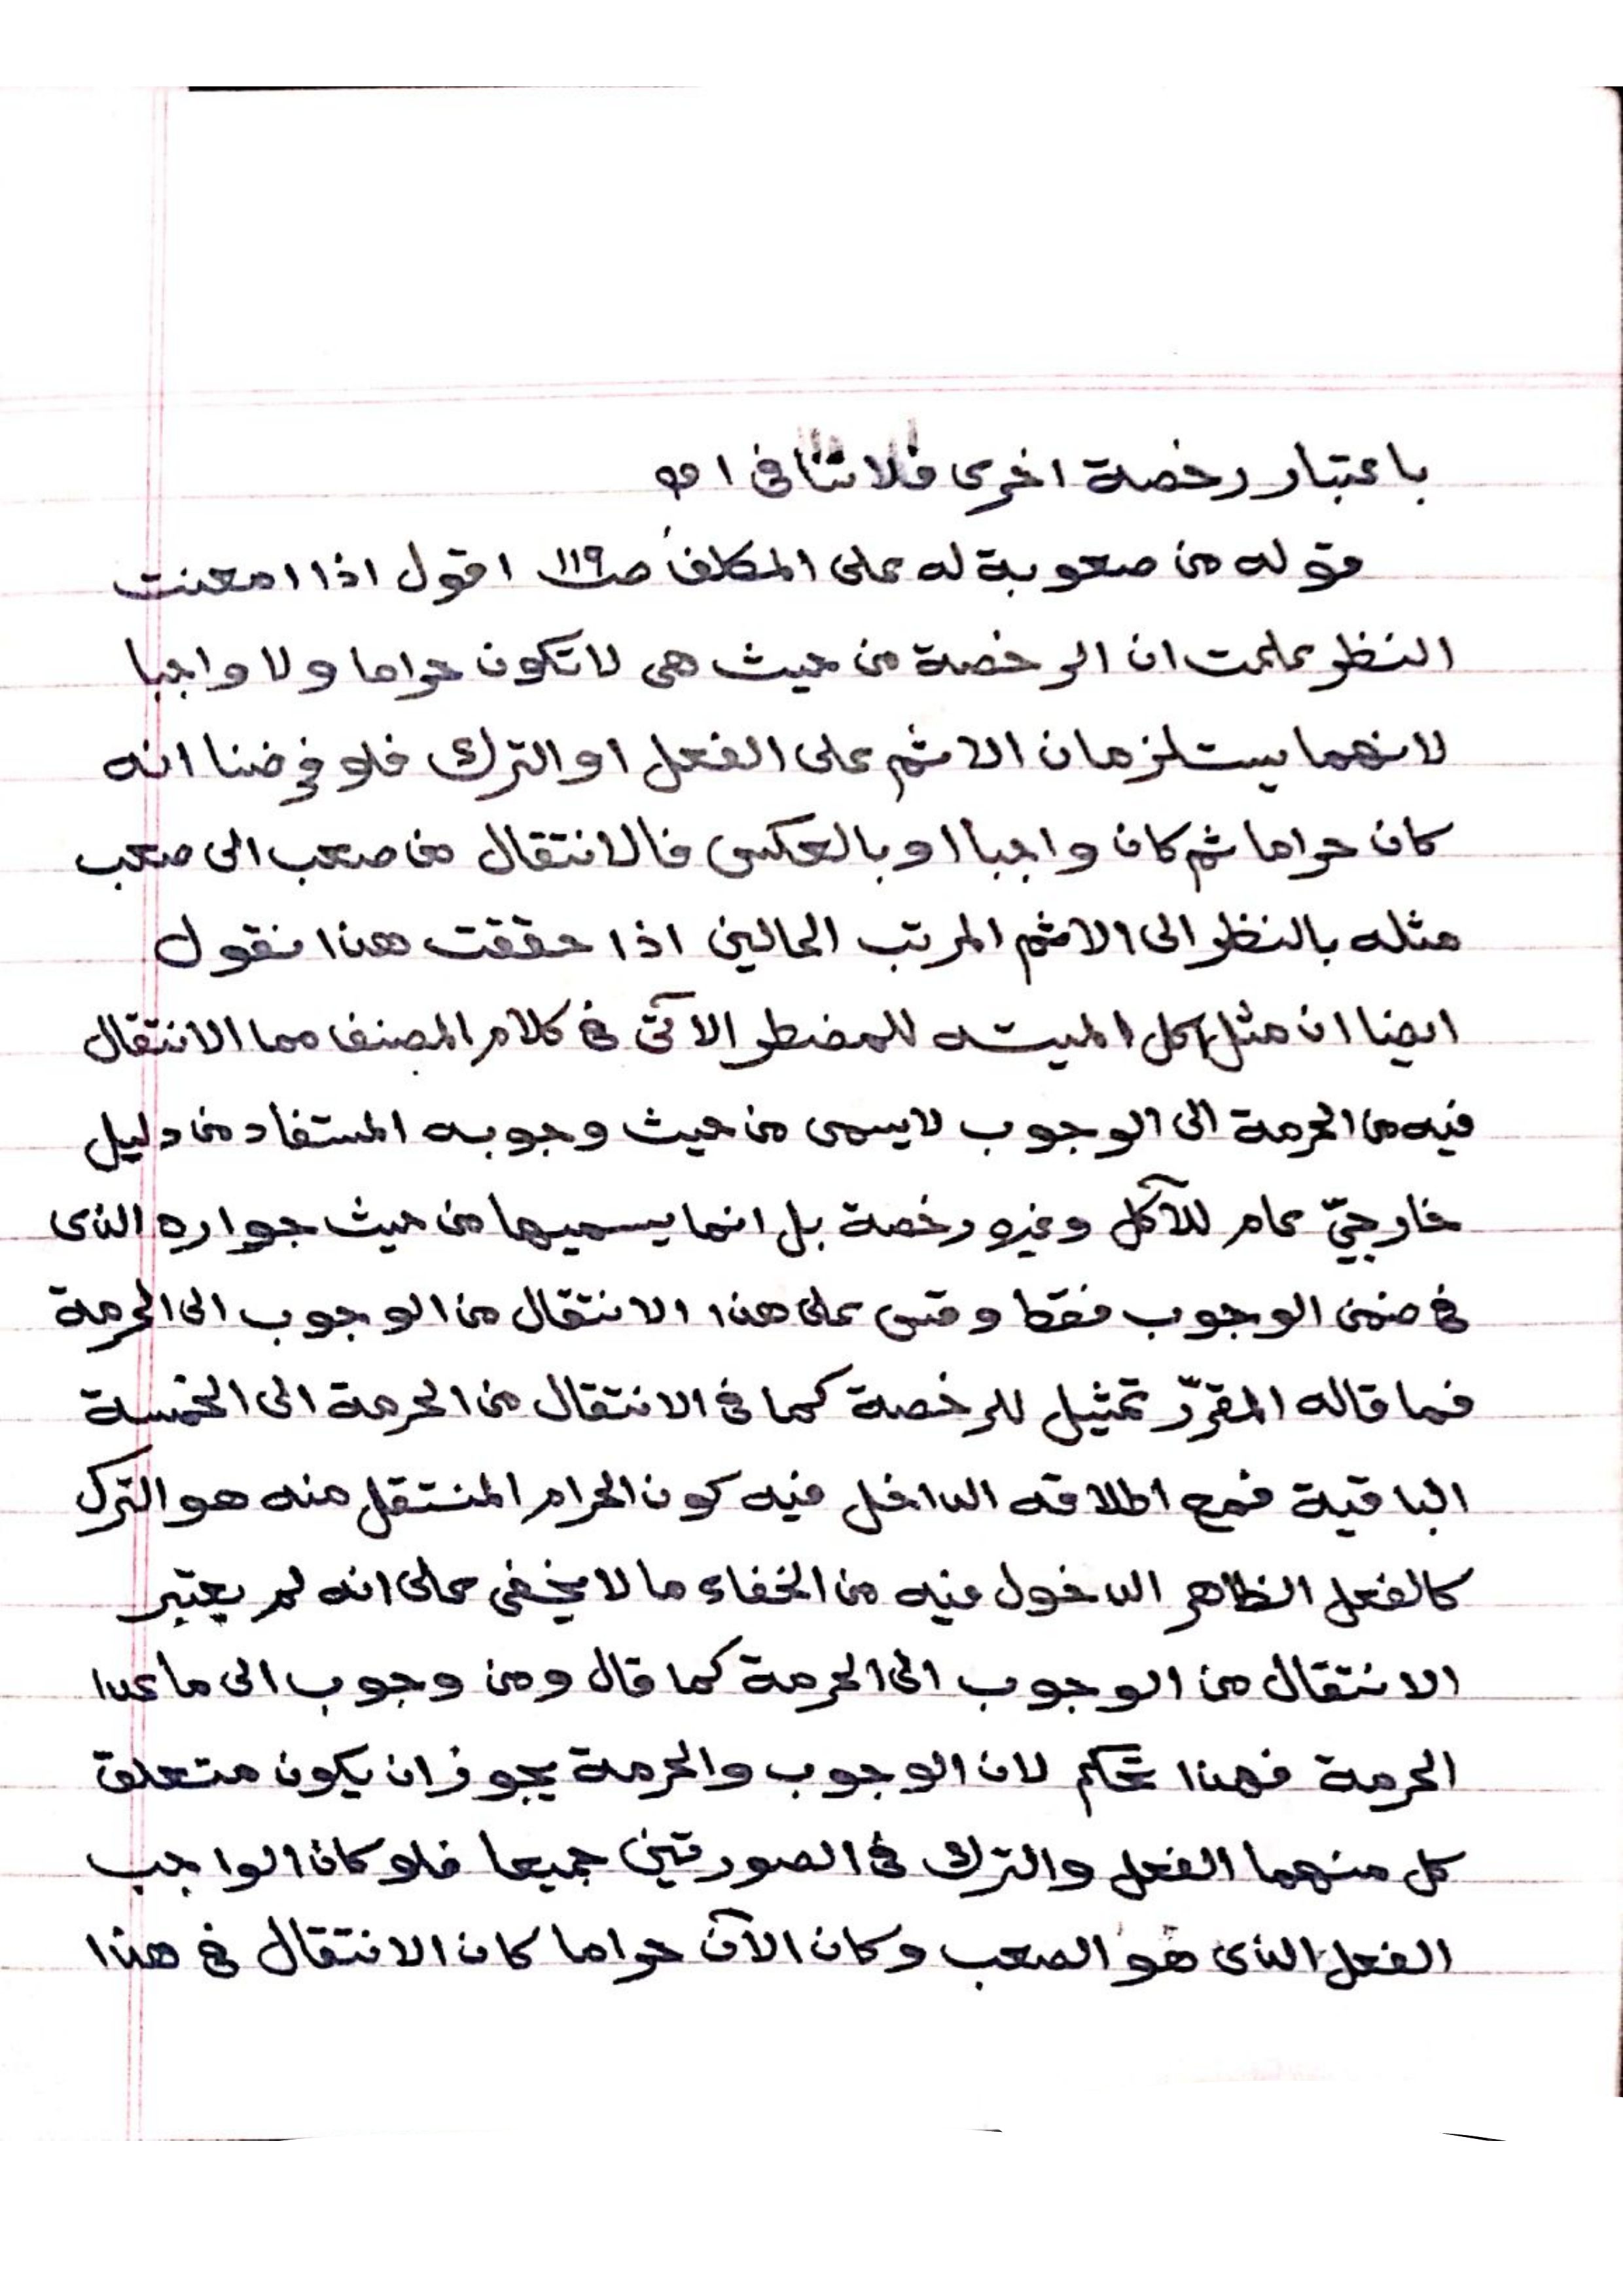 باعتبار رخصة اخرى فلا تنافى ا هو
قوله من صعوبة له على المكلف صـ١١٩ اقول اذا امعنت
النظر علمت ان الرخصة من حيث هى لا تكون حراما ولا واجبا
لانهما يستلزمان الاثم على الفعل او الترك فلو فرضنا انه
كان حراما ثم كان واجبا او بالعكس فالانتقال من صعب الى صعب
مثله بالنظر الى الاثم المرتب الحالين اذا حققت هذا نقول
ايضا ان مثل اكل الميته للمضطر الآتى فى كلام المصنف مما الانتقال
فيه من الحرمة الى الوجوب لا يسمى من حيث وجوبه المستفاد من دليل
خارجيّ عام للآكل وغيره رخصة بل انما يسميها من حيث جوازه الذى
فى ضمن الوجوب فقط وقس على هذا الانتقال من الوجوب الى الحرمة
فما قاله المقرّر تمثيل للرخصة كما فى الانتقال من الحرمة الى الخمسة
الباقية فمع اطلاقه الداخل فيه كون الحرام المنتقل منه هو الترك
كالفعل الظاهر الدخول فيه من الخفاء ما لا يخفى على انه لم يعتبر
الانتقال من الوجوب الى الحرمة كما قال ومن وجوب الى ما عدا
الحرمة فهذا تحكم لان الوجوب والحرمة يجوز ان يكون متعلق
كل منهما الفعل والترك فى الصورتين جميعا فلو كان الواجب
الفعل الذى هو الصعب وكان الآن حراما كان الانتقال فى هذا